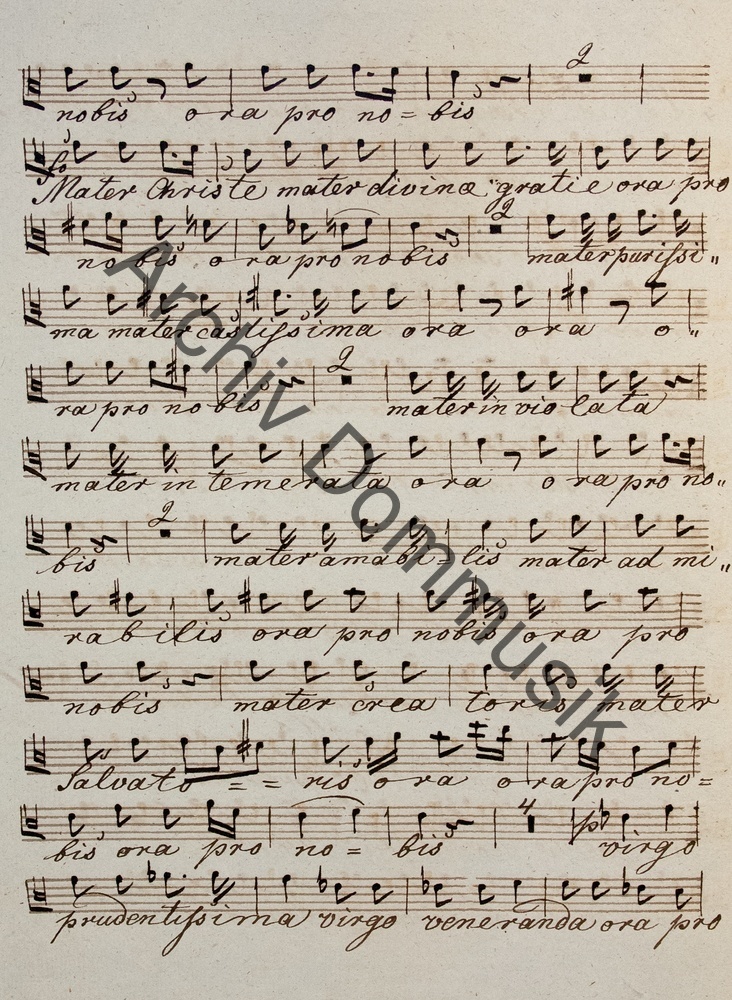 2
nobis ora pro no = bis
So
Mater Christe mater divinæ gratie ora pro
2
nobis ora pro nobis mater purissi "
ma mater castissima ora ora o "
2
ra pro nobis mater inviolata
mater in temerata ora ora pro no "
2
bis mater amabi = lis mater ad mi "
rabilis ora pro nobis ora pro
nobis mater crea toris mater
Salvato = = ris ora ora pro no =
4 p
bis ora pro no = bis virgo
prudentissima virgo veneranda ora pro
Archiv Dommusik